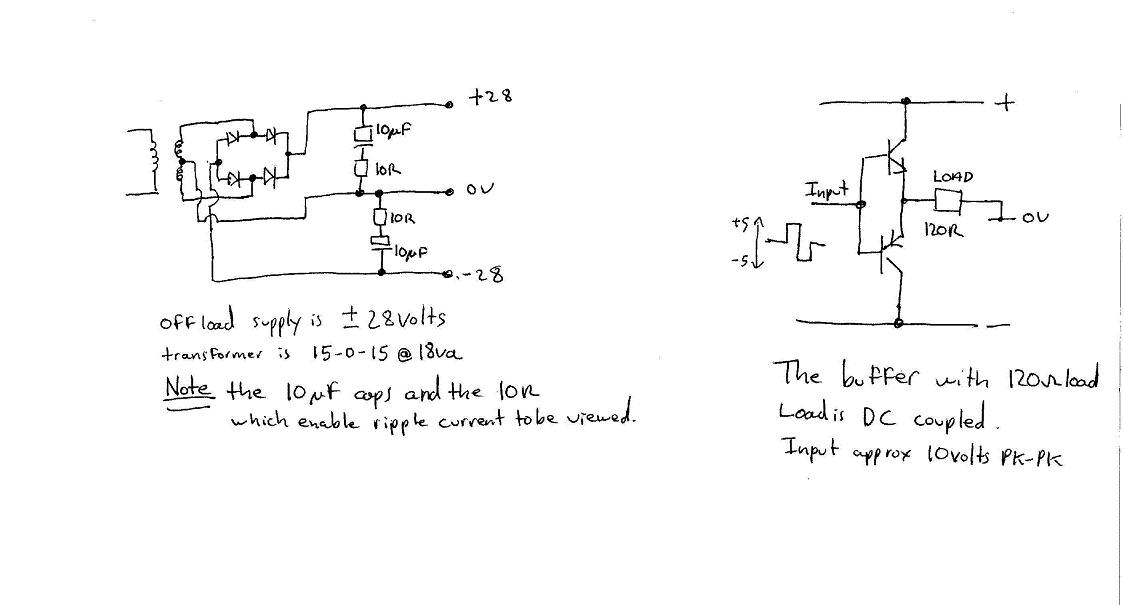 +28
10µF
10R
0V
10R
10µF
-28
OFF load supply is ± 28volts
transformer is 15-0-15 @ 18va
Note the 10µF caps and the 10R
which enable ripple current to be viewed.
+
Input
LOAD
120R
0V
+5
-5
−
The buffer with 120Ω load
Load is DC coupled.
Input approx 10volts PK-PK